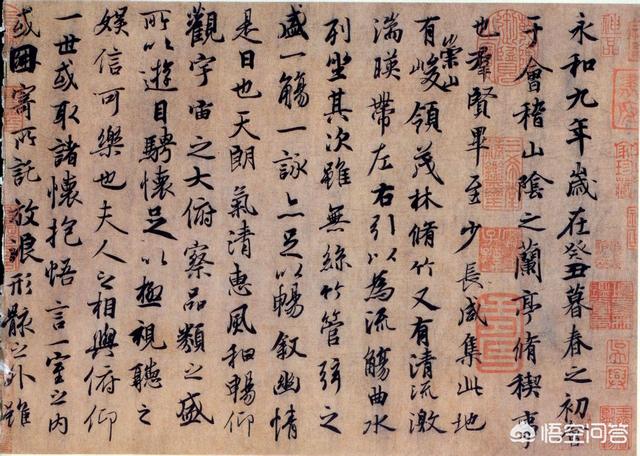 永和九年歲在癸丑暮春之初會
于會稽山陰之蘭亭脩稧事
也羣賢畢至少長咸集此地
有崇山峻領茂林脩竹又有清流激
湍暎帶左右引以為流觴曲水
列坐其次雖無絲竹管弦之
盛一觴一詠亦足以暢敘幽情
是日也天朗氣清惠風和暢仰
觀宇宙之大俯察品類之盛
所以遊目騁懷足以極視聽之
娛信可樂也夫人之相與俯仰
一世或取諸懷抱悟言一室之內
或因寄所託放浪形骸之外雖
悟空问答